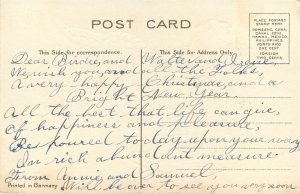 POST CARD
PLACE POSTAGE
STAMP HERE
DOMESTIC, CUBA,
HAWAII, MEXICO,
PHILIPPINES
PORTO RICO
ONE CENT
FOREIGN
TWO CENTS
This Side for correspondence.
This Side for Address Only.
Dear Birdie, and Walter and
We wish you and all the folks,
A very happy Christmas, and a
Bright New Year.
All the best that life can give,
Of happiness and pleasure,
Be poured today upon your way
In rich abundant measure
From Annie and Samuel,
Will be over to see you very soon
Printed in Germany